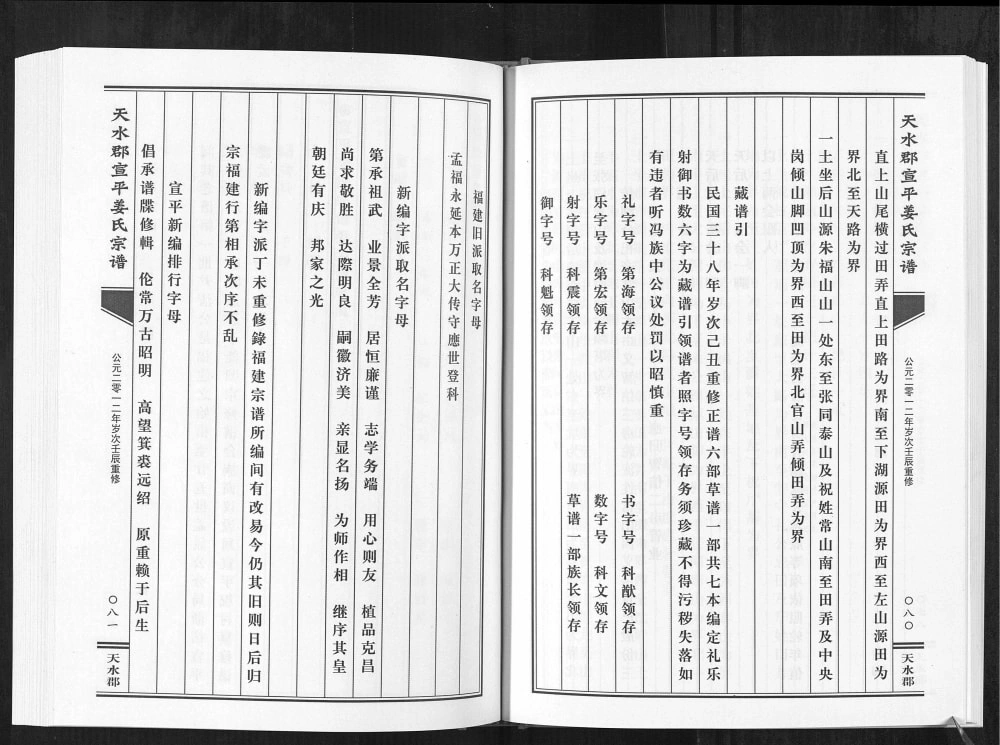 天水郡宣平姜氏宗谱
公元二零一二年岁次壬辰重修
〇八〇
天水郡
直上山尾横过田弄直上田路为界南至下湖源田为界西至左山源田为
界北至天路为界
一土坐后山源朱福山山一处东至张同泰山及祝姓常山南至田弄及中央
岗倾山脚凹顶为界西至田为界北官山弄倾田弄为界
藏谱引
民国三十八年岁次己丑重修正谱六部草谱一部共七本编定礼乐
射御书数六字为藏谱引领谱者照字号领存务须珍藏不得污秽失落如
有违者听冯族中公议处罚以昭慎重
礼字号 第海领存 书字号 科猷领存
乐字号 第宏领存 数字号 科文领存
射字号 科震领存 草谱一部族长领存
御字号 科魁领存
福建旧派取名字母
孟福永延本万正大传守應世登科
新编字派取名字母
第承祖武 业景全芳 居恒廉谨 志学务端 用心则友 植品克昌
尚求敬胜 达際明良 嗣徽济美 亲显名扬 为师作相 继序其皇
朝廷有庆 邦家之光
新编字派丁未重修錄福建宗谱所编间有改易今仍其旧则日后归
宗福建行第相承次序不乱
宣平新编排行字母
倡承谱牒修輯 伦常万古昭明 高望箕裘远绍 原重赖于后生
天水郡宣平姜氏宗谱
公元二零一二年岁次壬辰重修
〇八一
天水郡